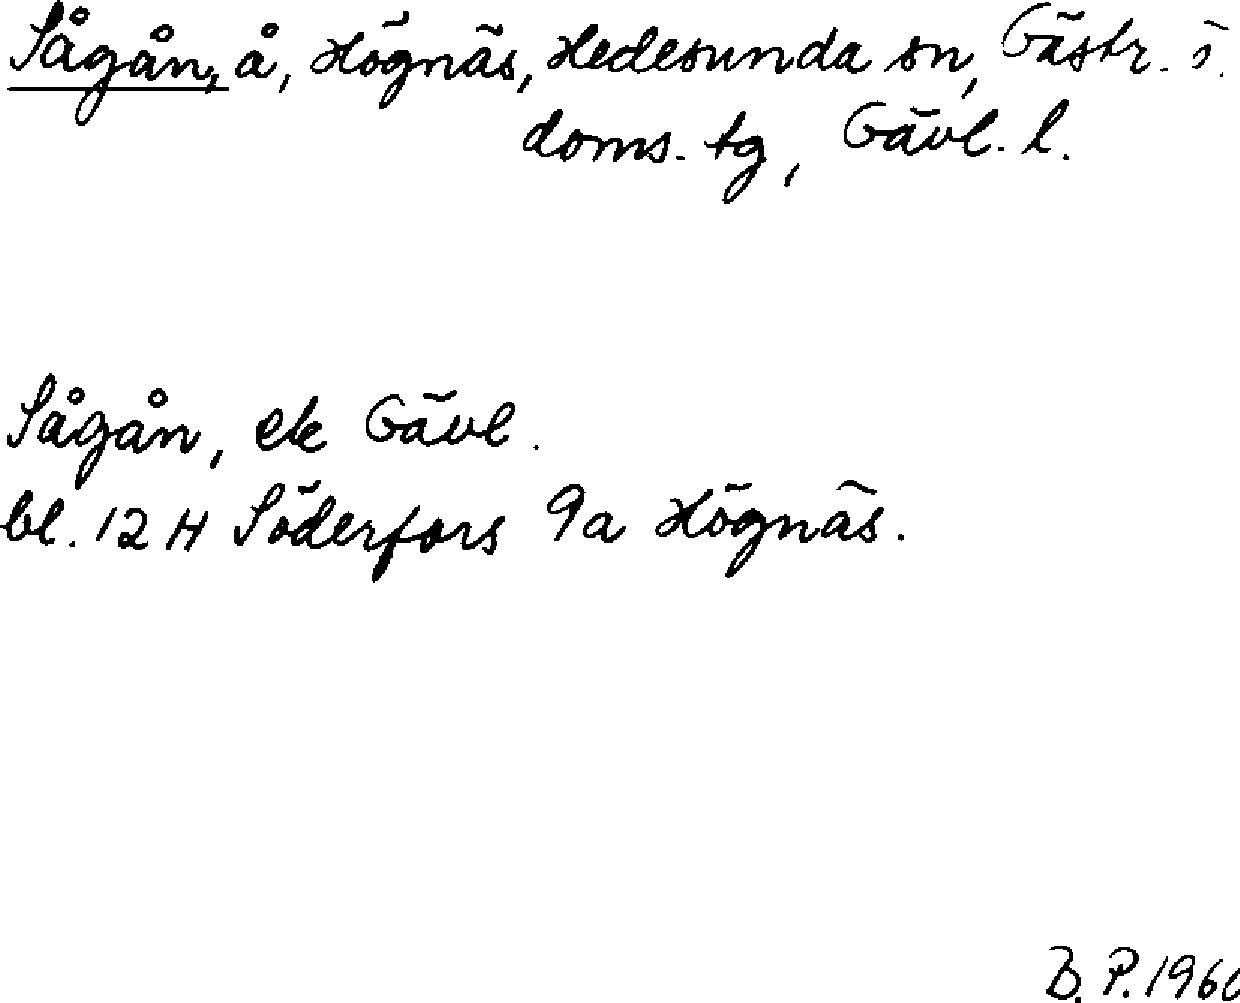 Sågån, å, Högnäs, Hedesunda sn, Gästr. ö.
doms. tg, Gävl. l.
Sågån, ek Gävl.
bl. 12 H Söderfors 9a Högnäs.
B. P. 1966